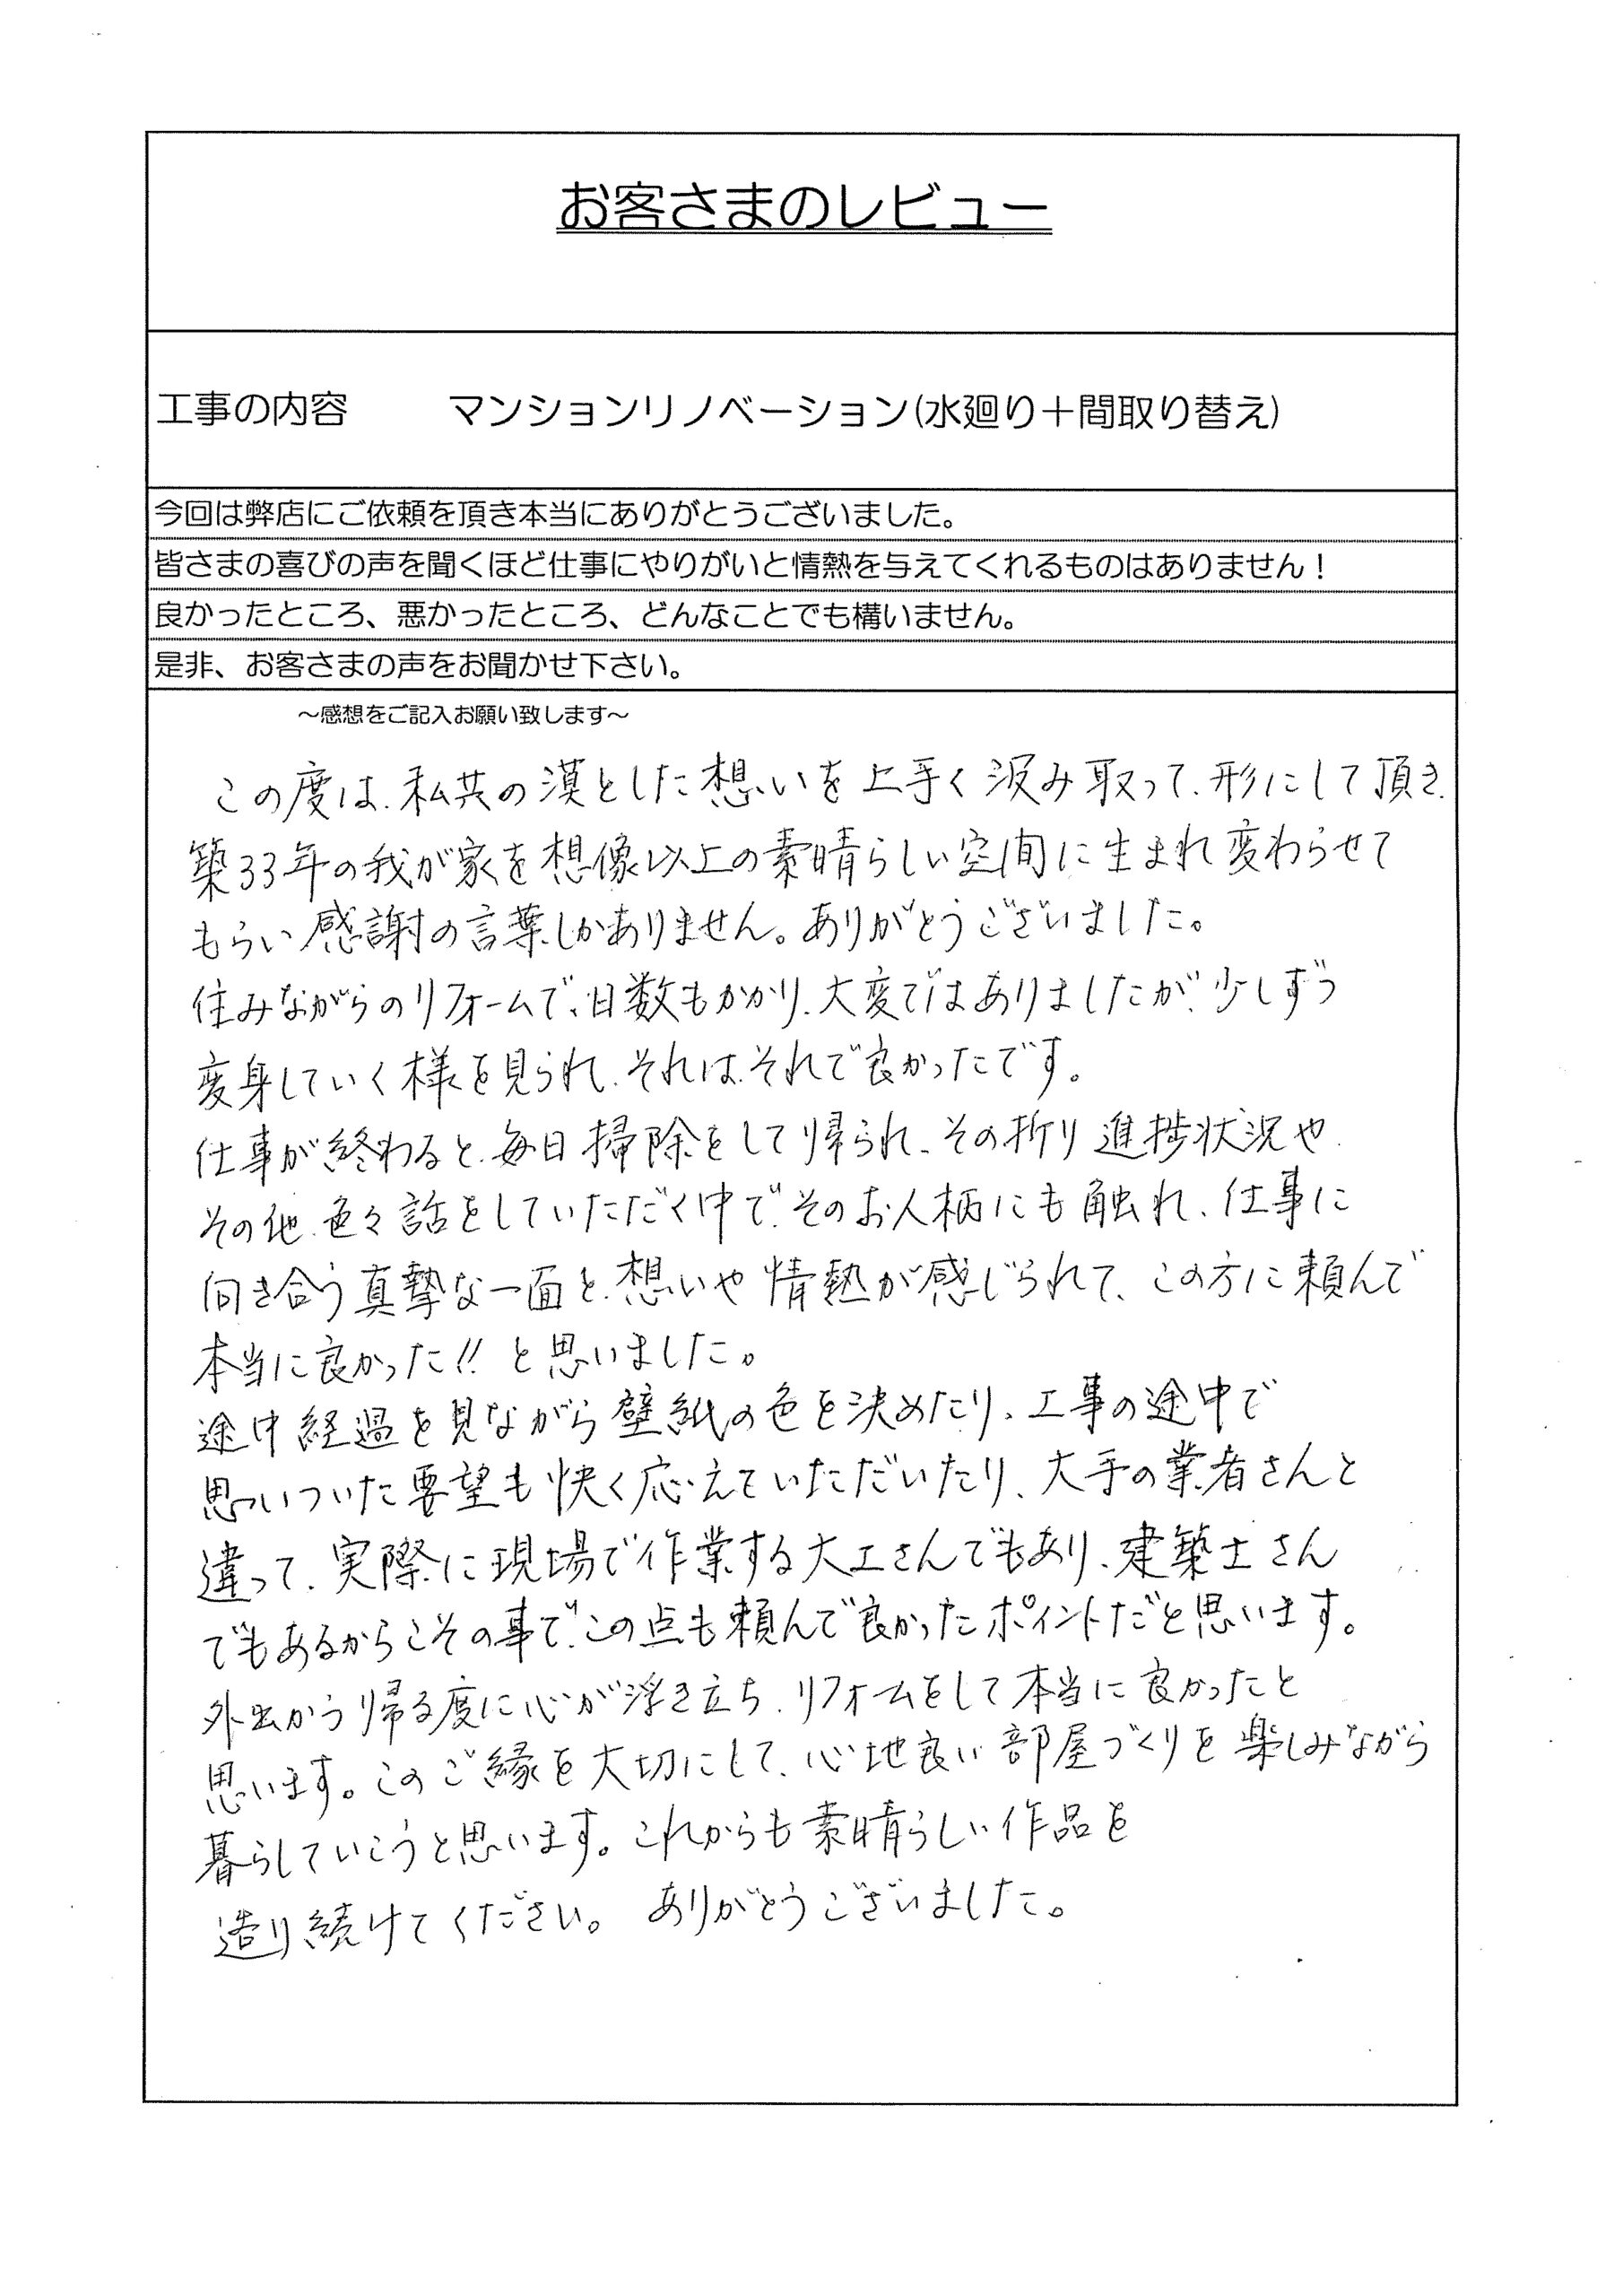 お客さまのレビュー
工事の内容　マンションリノベーション(水廻り＋間取り替え)
今回は弊店にご依頼を頂き本当にありがとうございました。
皆さまの喜びの声を聞くほど仕事にやりがいと情熱を与えてくれるものはありません！
良かったところ、悪かったところ、どんなことでも構いません。
是非、お客さまの声をお聞かせ下さい。
～感想をご記入お願い致します～
この度は、私共の漠とした想いを上手く汲み取って、形にして頂き、
築33年の我が家を想像以上の素晴らしい空間に生まれ変わらせて
もらい感謝の言葉しかありません。ありがとうございました。
住みながらのリフォームで、日数もかかり、大変ではありましたが、少しずつ
変身していく様を見られ、それは、それで良かったです。
仕事が終わると、毎日掃除をして帰られ、その折り進捗状況や、
その他、色々話をしていただく中で、そのお人柄にも触れ、仕事に
向き合う真摯な一面と、想いや情熱が感じられて、この方に頼んで
本当に良かった!! と思いました。
途中経過を見ながら壁紙の色を決めたり、工事の途中で
思いついた要望も快く応えていただいたり、大手の業者さんと
違って、実際に現場で作業する大工さんでもあり、建築士さん
でもあるからこその事で、この点も頼んで良かったポイントだと思います。
外出から帰る度に心が浮き立ち、リフォームをして本当に良かったと
思います。このご縁を大切にして、心地良い部屋づくりを楽しみながら
暮らしていこうと思います。これからも素晴らしい作品を
造り続けてください。 ありがとうございました。